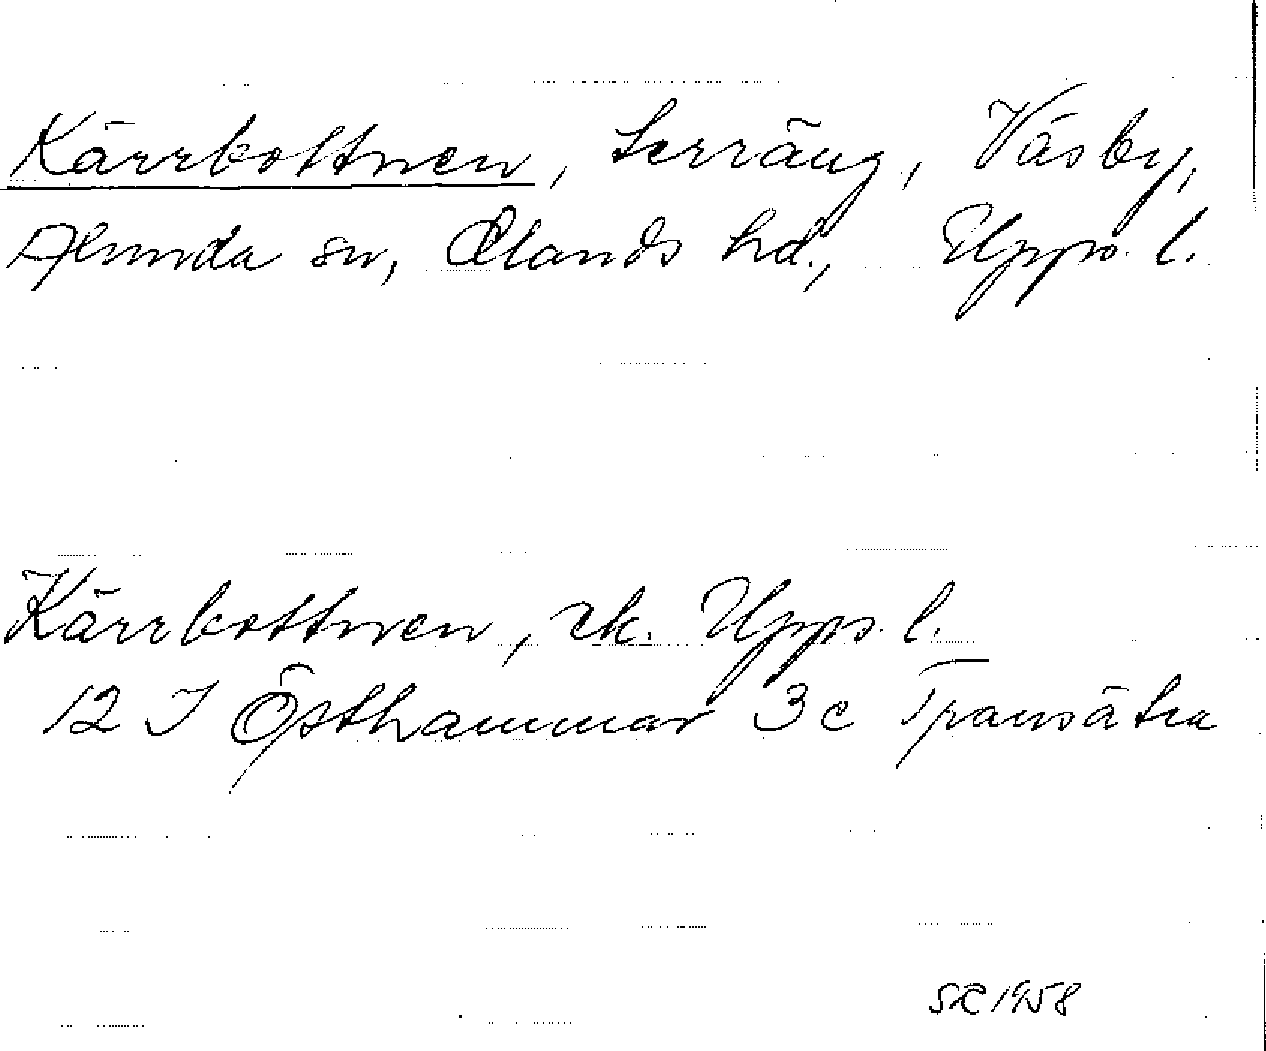 Kärrbottnen, terräng, Väsby,
Alunda sn, Olands hd., Upps. l.
Kärrbottnen, ek. Upps. l.
12 I Östhammar 3c Transätra
SR 1958